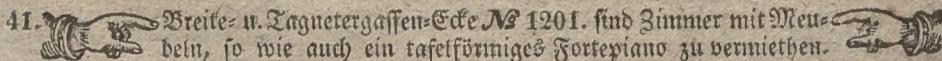 41. Breite= u. Tagnetergassen=Ecke № 1201. sind Zimmer mit Meu=
beln, so wie auch ein tafelförmiges Fortepiano zu vermiethen.